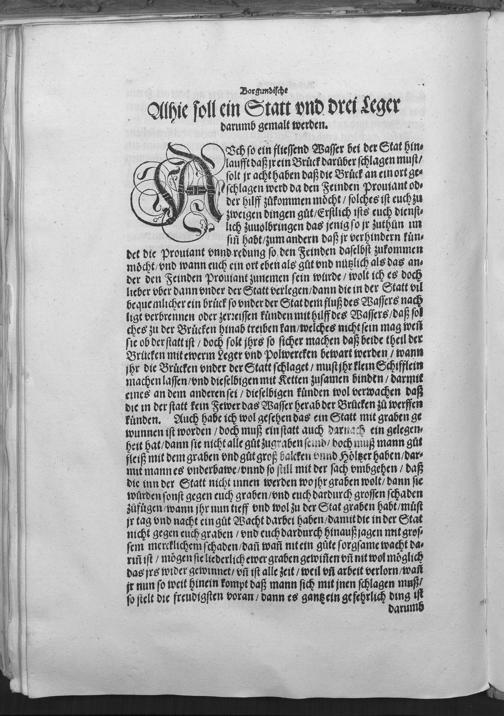 Borgundische
Alhie soll ein Statt vnd drei Leger
darumb gemalt werden.
AVch so ein fliessend Wasser bei der Stat hin-
laufft daß jr ein Brück darüber schlagen must/
solt jr acht haben daß die Brück an ein ort ge-
schlagen werd da den Feinden Prouiant od-
der hilff zůkommen möcht/ solches ist euch zu
zweigen dingen gůt/ Erstlich ists euch dienst-
lich zuuolbringen das jenig so jr zuthůn im
sin̄ habt/ zum andern daß jr verhindern kün-
det die Prouiant vnnd redung so den Feinden daselbst zukommen
möcht/ vnd wann euch ein ort eben als gůt vnd nützlich als das an-
der den Feinden Prouiant zunemen sein würde/ wolt ich es doch
lieber vber dann vnder der Statt verlegen/ dann die in der Statt vil
bequemlicher ein brück so vnder der Stat dem fluß des Wassers nach
ligt verbrennen oder zerreissen künden mit hilff des Wassers/ daß sol
ches zu der Brücken hinab treiben kan/ welches nicht sein mag wen̄
sie ob der statt ist/ doch solt jhrs so sicher machen daß beide theil der
Brücken mit ewerm Leger vnd Polwercken bewart werden/ wann
jhr die Brücken vnder der Statt schlaget/ must jhr klein Schifflein
machen lassen/ vnd dieselbigen mit Ketten zusamen binden/ darmit
eines an dem anderen sei/ dieselbigen künden wol verwachen daß
die in der statt kein Fewer das Wasser herab der Brücken zů werffen
künden. Auch habe ich wol gesehen das ein Statt mit graben ge
wunnen ist worden/ doch muß ein statt auch darnach ein gelegen-
heit hat/ dann sie nicht alle gůt zugraben seind/ doch muß mann gůt
fleiß mit dem graben vnd gůt groß balcken vnnd Höltzer haben/ dar-
mit mann es vnderbawe/ vnnd so still mit der sach vmbgehen/ daß
die inn der Statt nicht innen werden wo jhr graben wolt/ dann sie
würden sonst gegen euch graben/ vnd euch dardurch grossen schaden
zůfügen/ wann jhr nun tieff vnd wol zu der Stat graben habt/ můst
jr tag vnd nacht ein gůt Wacht darbei haben/ damit die in der Stat
nicht gegen euch graben/ vnd euch dardurch hinauß jagen mit gros-
sem mercklichem schaden/ dan̄ wan̄ nit ein gůte sorgsame wacht da-
rin̄ ist/ mögen sie liederlich ewer graben gewin̄en vn̄ nit wol möglich
das jrs wider gewinnet/ vn̄ ist alle zeit/ weil vn̄ arbeit verlorn/ wan̄
jr nun so weit hinein kompt daß mann sich mit jnen schlagen muß/
so stelt die freudigsten voran/ dann es gantz ein gefehrlich ding ist
darumb